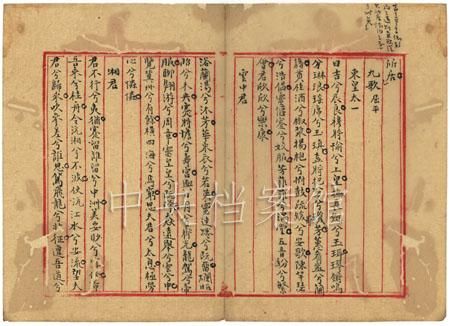 所居
九歌 屈平
東皇太一
日吉兮辰良穆將愉兮上皇撫長劍兮玉珥璆鏘鳴
兮琳琅瑤席兮玉瑱盍將把兮瓊芳蕙肴蒸兮蘭
藉奠桂酒兮椒漿揚枹兮拊鼓疏緩節兮安歌陳竽瑟
兮浩倡靈偃蹇兮姣服芳菲菲兮滿堂五音紛兮繁
會君欣欣兮樂康
雲中君
浴蘭湯兮沐芳華采衣兮若英靈連蜷兮既留爛昭
昭兮未央蹇將憺兮壽宮與日月兮齊光龍駕兮帝
服聊翱遊兮周章靈皇皇兮既降猋遠舉兮雲中
覽冀州兮有餘橫四海兮焉窮思夫君兮太息極勞
心兮忡忡
湘君
君不行兮夷猶蹇誰留兮中洲美要眇兮宜修沛
吾乘兮桂舟令沅湘兮無波使江水兮安流望夫
君兮歸來吹參差兮誰思駕飛龍兮北征邅吾道兮